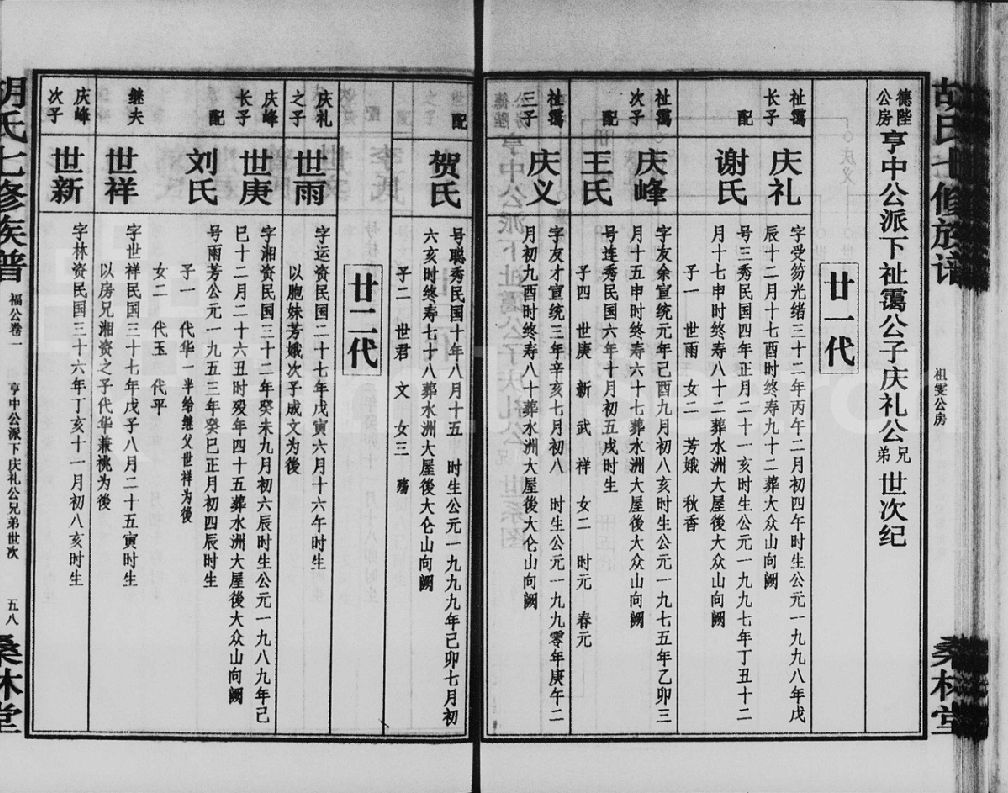 胡氏七修族谱
祖雯公房
桑林堂
德陛公房
亨中公派下祉霭公子庆礼公兄弟世次纪
廿一代
祉霭长子
庆礼
字受纷光绪三十二年丙午二月初四午时生公元一九九八年戊
辰十二月十七酉时终寿九十二葬大众山向阙
配
谢氏
号三秀民国四年正月二十一亥时生公元一九九七年丁丑十二
月十七申时终寿八十二葬水洲大屋後大众山向阙
子一 世雨 女二 芳娥 秋香
祉霭次子
庆峰
字友余宣统元年己酉九月初八亥时生公元一九七五年乙卯三
月十五申时终寿六十七葬水洲大屋後大众山向阙
配
王氏
号连秀民国六年十月初五戌时生
子四 世庚 新 武 祥 女二 时元 春元
祉霭三子
庆义
字友才宣统三年辛亥七月初八 时生公元一九九零年庚午二
月初九酉时终寿八十葬水洲大屋後大仑山向阙
配
贺氏
号聪秀民国十年八月十五 时生公元一九九九年己卯七月初
六亥时终寿七十八葬水洲大屋後大仑山向阙
子二 世君 文 女三 殇
廿二代
庆礼之子
世雨
字运资民国二十七年戊寅六月十六午时生
以胞妹芳娥次子成文为後
庆峰长子
世庚
字湘资民国三十二年癸未九月初六辰时生公元一九八九年己
巳十二月二十六丑时殁年四十五葬水洲大屋後大众山向阙
配
刘氏
号雨芳公元一九五三年癸巳正月初四辰时生
子一 代华一半给继父世祥为後
女二 代玉 代平
继夫
世祥
字世祥民国三十七年戊子八月二十五寅时生
以房兄湘资之子代华兼祧为後
庆峰次子
世新
字林资民国三十六年丁亥十一月初八亥时生
胡氏七修族谱
福公卷一
亨中公派下庆礼公兄弟世次
五八
桑林堂